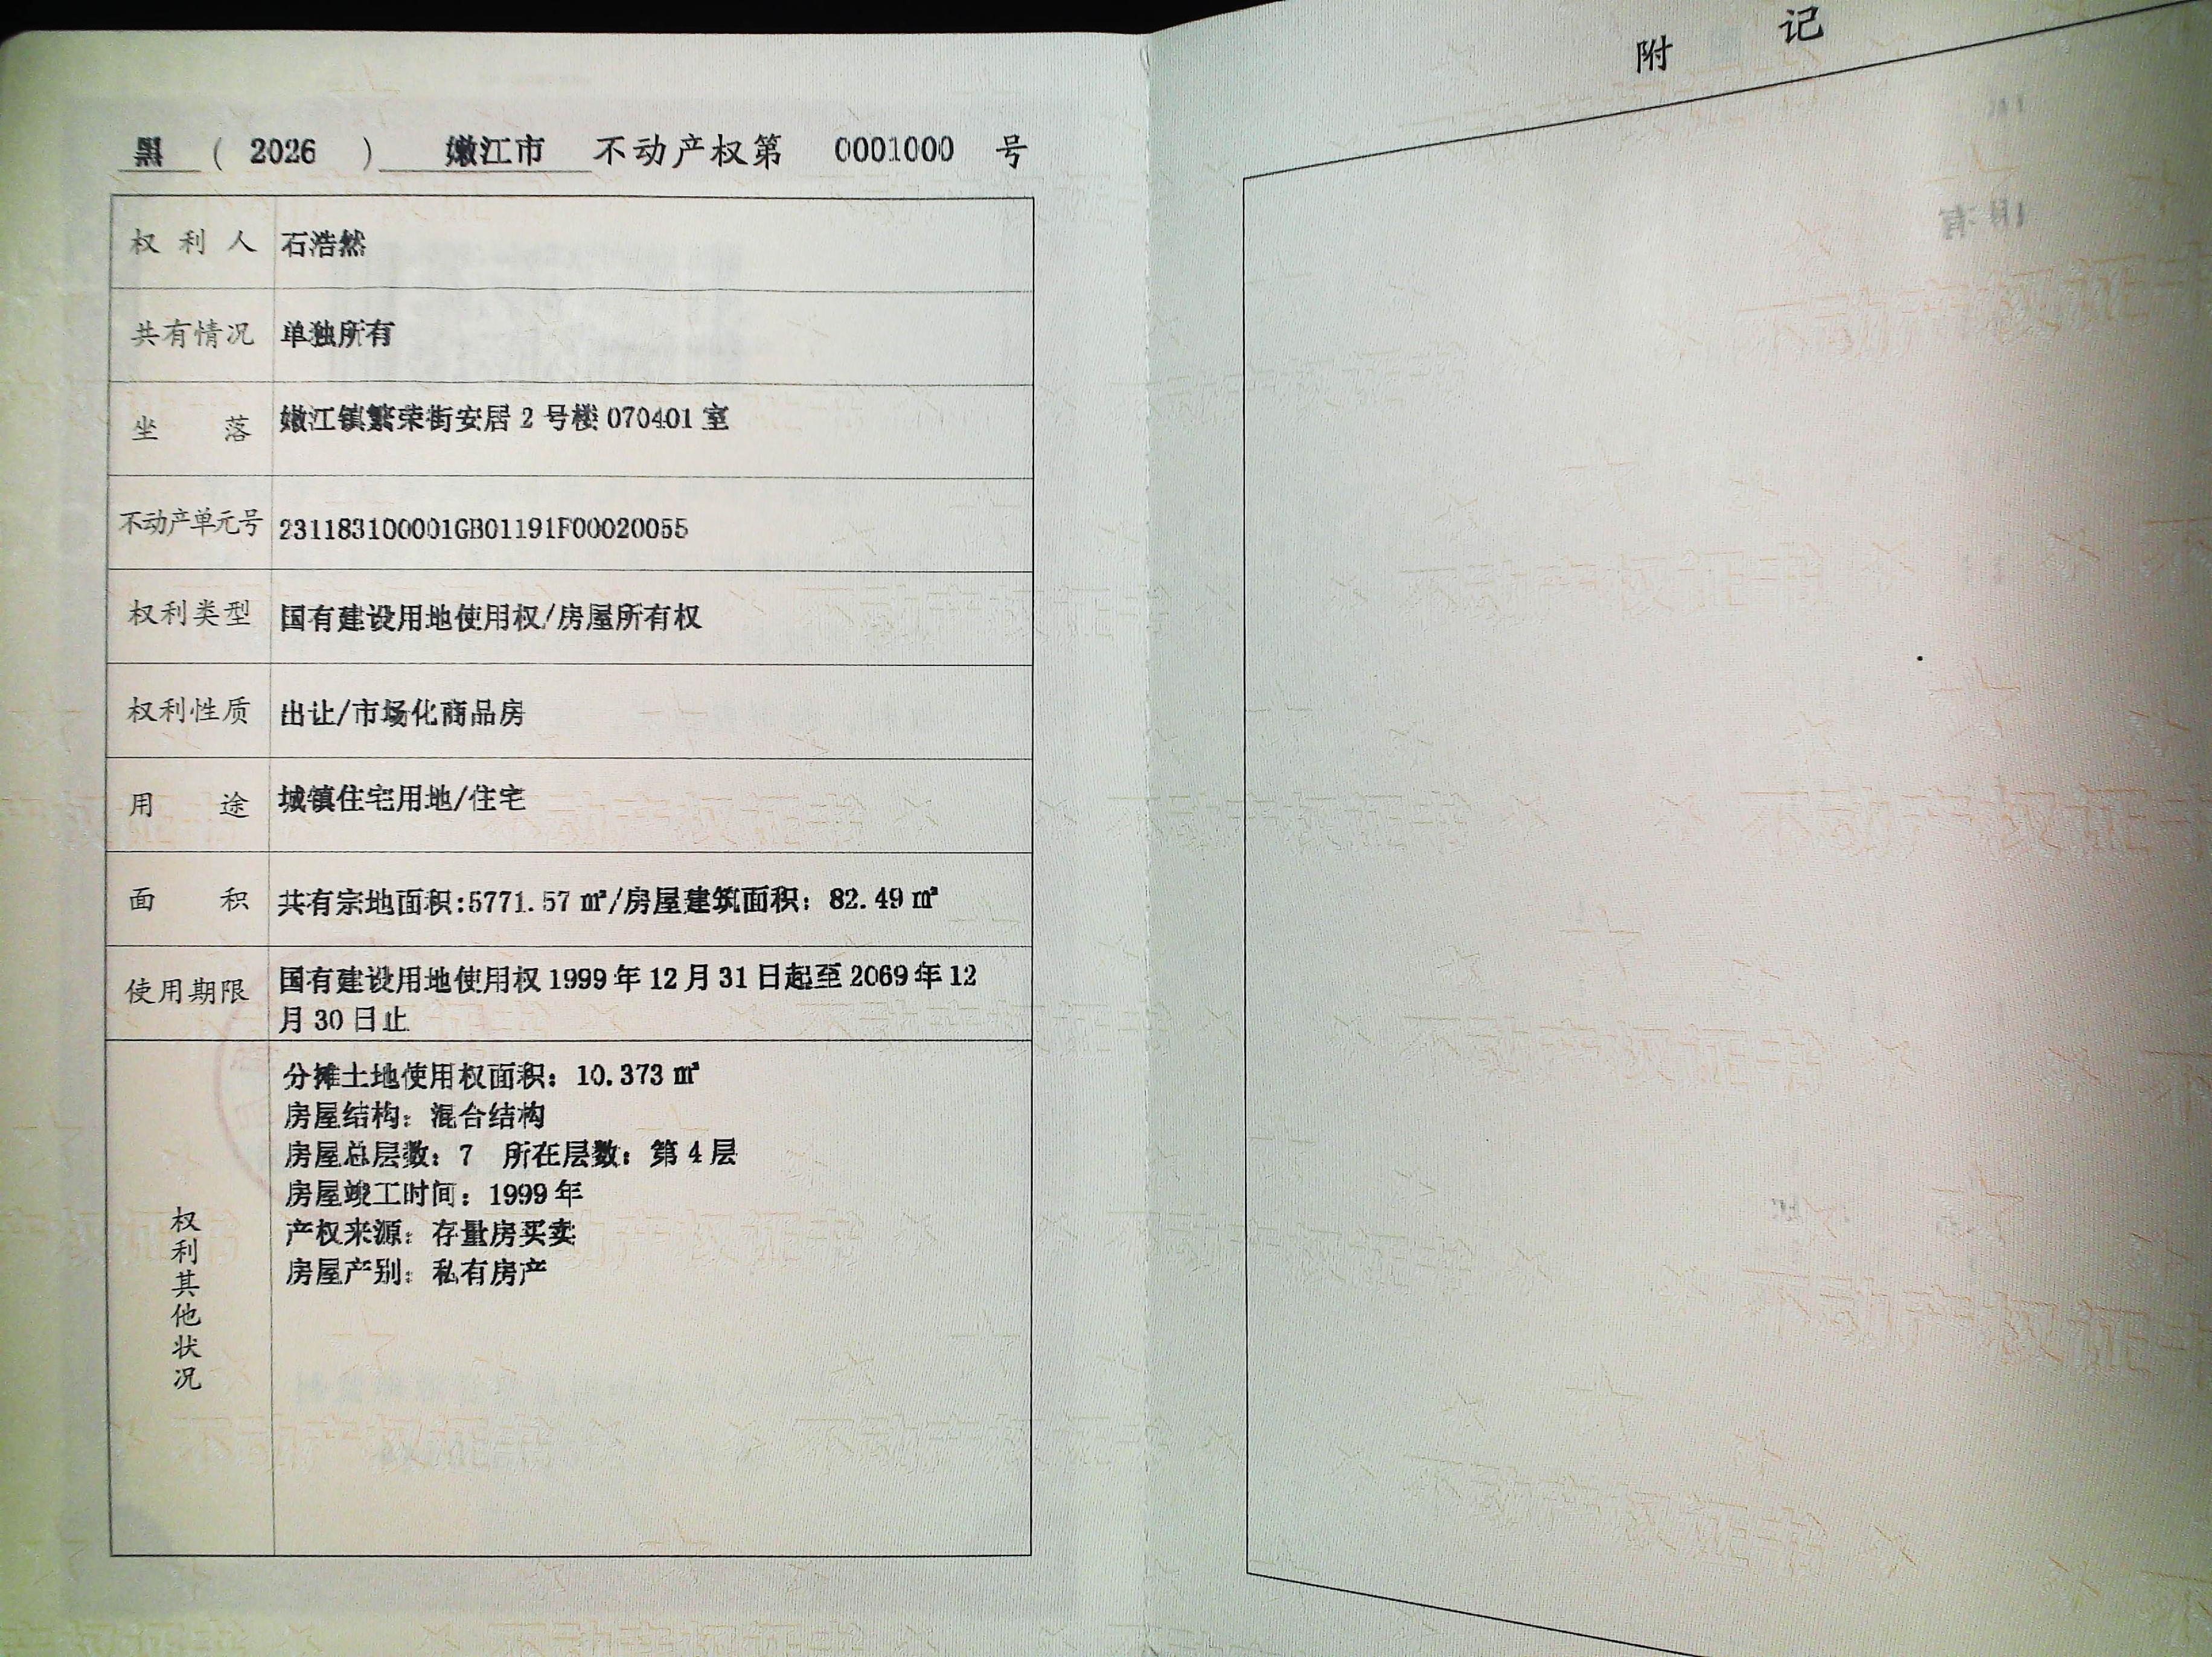 黑 ( 2026 ) 嫩江市 不动产权第 0001000 号
权利人 石浩然
共有情况 单独所有
坐落 嫩江镇繁荣街安居 2 号楼 070401 室
不动产单元号 231183100001GB01191F00020055
权利类型 国有建设用地使用权/房屋所有权
权利性质 出让/市场化商品房
用途 城镇住宅用地/住宅
面积 共有宗地面积:5771.57 ㎡/房屋建筑面积：82.49 ㎡
使用期限 国有建设用地使用权 1999 年 12 月 31 日起至 2069 年 12
月 30 日止
权利其他状况
分摊土地使用权面积：10.373 ㎡
房屋结构：混合结构
房屋总层数：7 所在层数：第 4 层
房屋竣工时间：1999 年
产权来源：存量房买卖
房屋产别：私有房产
附记